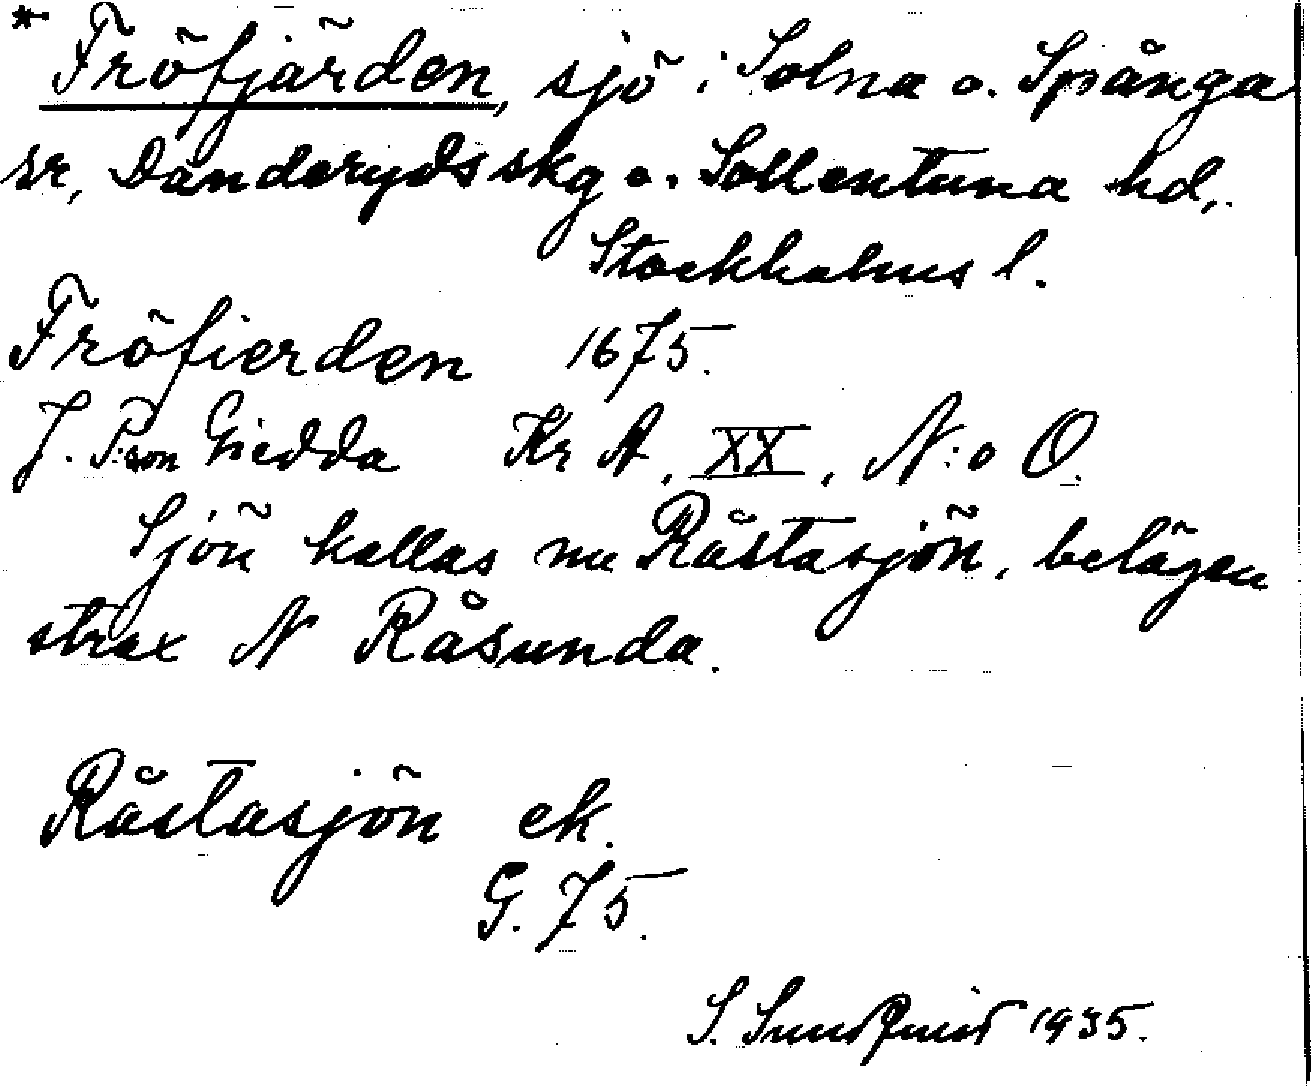 * Fröfjärden, sjö i Solna o. Spånga
sr, Danderyds skg o. Sollentuna hd,
Stockholms l.
Fröfierden 1675.
J. P:son Giedda Kr A, XX, N:o O.
Sjön kallas nu Råstasjön, belägen
strax N Råsunda.
Råstasjön ek.
G. 75.
S. Sundquist 1935.